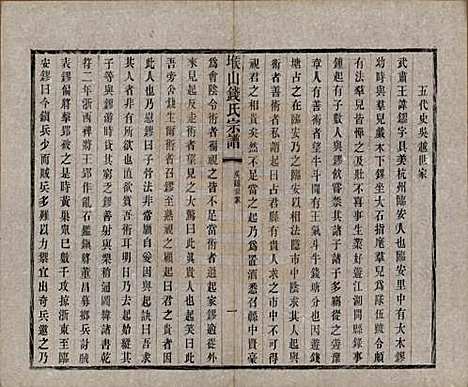 五代史吳越世家
武肅王諱鏐字具美杭州臨安人也臨安里中有大木鏐
幼時與羣兒戲木下鏐坐大石指麾羣兒爲隊伍號令頗
有法羣兒皆憚之及壯無賴不喜事生業好遊江湖間縣錄事
鍾起有子數人與鏐飲博起嘗禁其諸子諸子多竊從之遊豫
章人有善術者望牛斗間有王氣牛斗錢塘分也因遊錢
塘占之在臨安乃之臨安以相法隱市中陰求其人起與
術者善術者私謂起曰占君縣有貴人求之市中不可得
視君之相貴矣然不足當之起乃爲置酒悉召縣中賢豪
爲會陰令術者徧視之皆不足當術者過起家鏐適從外
來見起反走術者望見之大驚曰此眞貴人也起笑曰此
吾旁舍錢生爾術者召鏐至熟視之顧起曰君之貴者因此人也
乃慰鏐曰子骨法非常願自愛因與起訣曰吾求
其人者非有所欲直欲質吾術耳明日乃去起始縱其子
等與鏐遊時時貸其窮乏鏐善射與槊稍通圖緯諸書乾
符二年浙西裨將王郢作亂石鑑鎭將董昌募鄉兵討賊
表鏐偏將擊郢破之是時黃巢衆已數千攻掠浙東至臨
安鏐曰今鎭兵少而賊兵多難以力禦宜出奇兵邀之乃
堠山錢氏宗譜
吳越世家
一